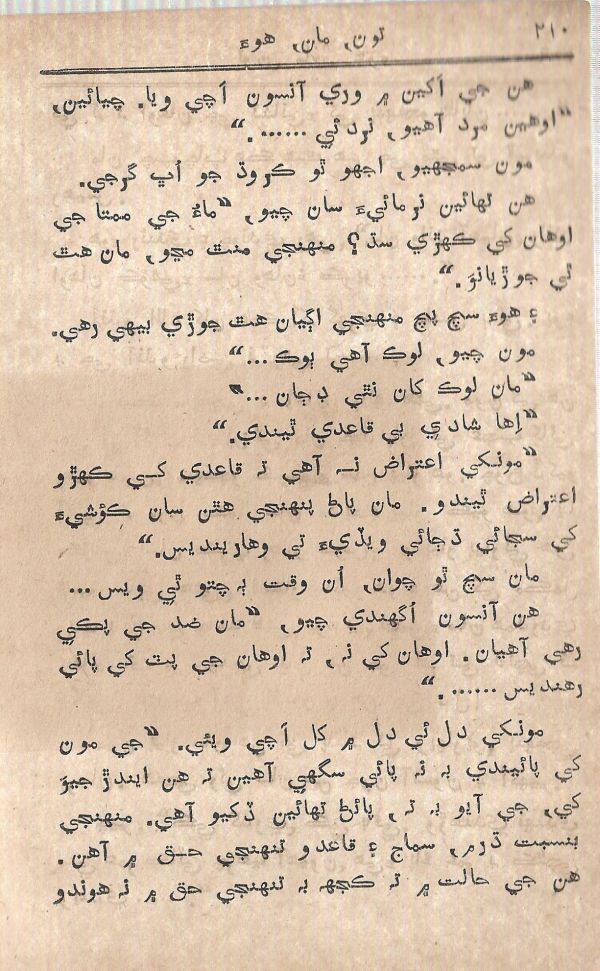 ۲۱۰
تون, مان, هوءَ
هن جي اکين ۾ وري آنسون اَچي ويا. چيائين,
”اوهين مرد آهيو, نردئي ...... .“
مون سمجهيو, اجهو ٿو ڪروڌ جو اُڀ گرجي.
هن تهائين نرمائيءَ سان چيو, ”ماءُ جي ممتا جي
اوهان کي ڪهڙي سڌ؟ منهنجي منٿ مڃو, مان هٿ
ٿي جوڙيانوَ.“
۽ هوءَ سچ پچ منهنجي اڳيان هٿ جوڙي بيهي رهي.
مون چيو, لوڪ آهي ٻوڪ...“
”مان لوڪ کان نٿي ڊڄان...“
”اِها شادي بي قاعدي ٿيندي.“
”مونکي اعتراض نـہ آهي تہ قاعدي کـي ڪهڙو
اعتراض ٿيندو. مان پاڻ پنهنجي هٿن سان ڪؤشيءَ
کي سجائي ڌڄائي ويڏيءَ تي وهاريندیس.“
مان سچ ٿو چوان, اُن وقت ٻہ چتو ٿي ويس...
هن آنسون اُگهندي چيو, ”مان ضد جي پڪي
رهي آهيان. اوهان کي نہ, تہ اوهان جي پٽ کي پائي
رهنديس...... .“
مونکي دل ئي دل ۾ کل اَچي ويئي. ”جي مون
کي پائيندي بہ نہ پائي سگهي آهين تہ هن ايندڙ جيوَ
کي, جي آيو بہ تہ, پائڻ تهائين ڏکيو آهي. منهنجي
بنسبت ڌرم, سماج ۽ قاعدو تنهنجي حـق ۾ آهن.
هن جي حالت ۾ تہ ڪجهہ بہ تنهنجي حق ۾ نہ هوندو